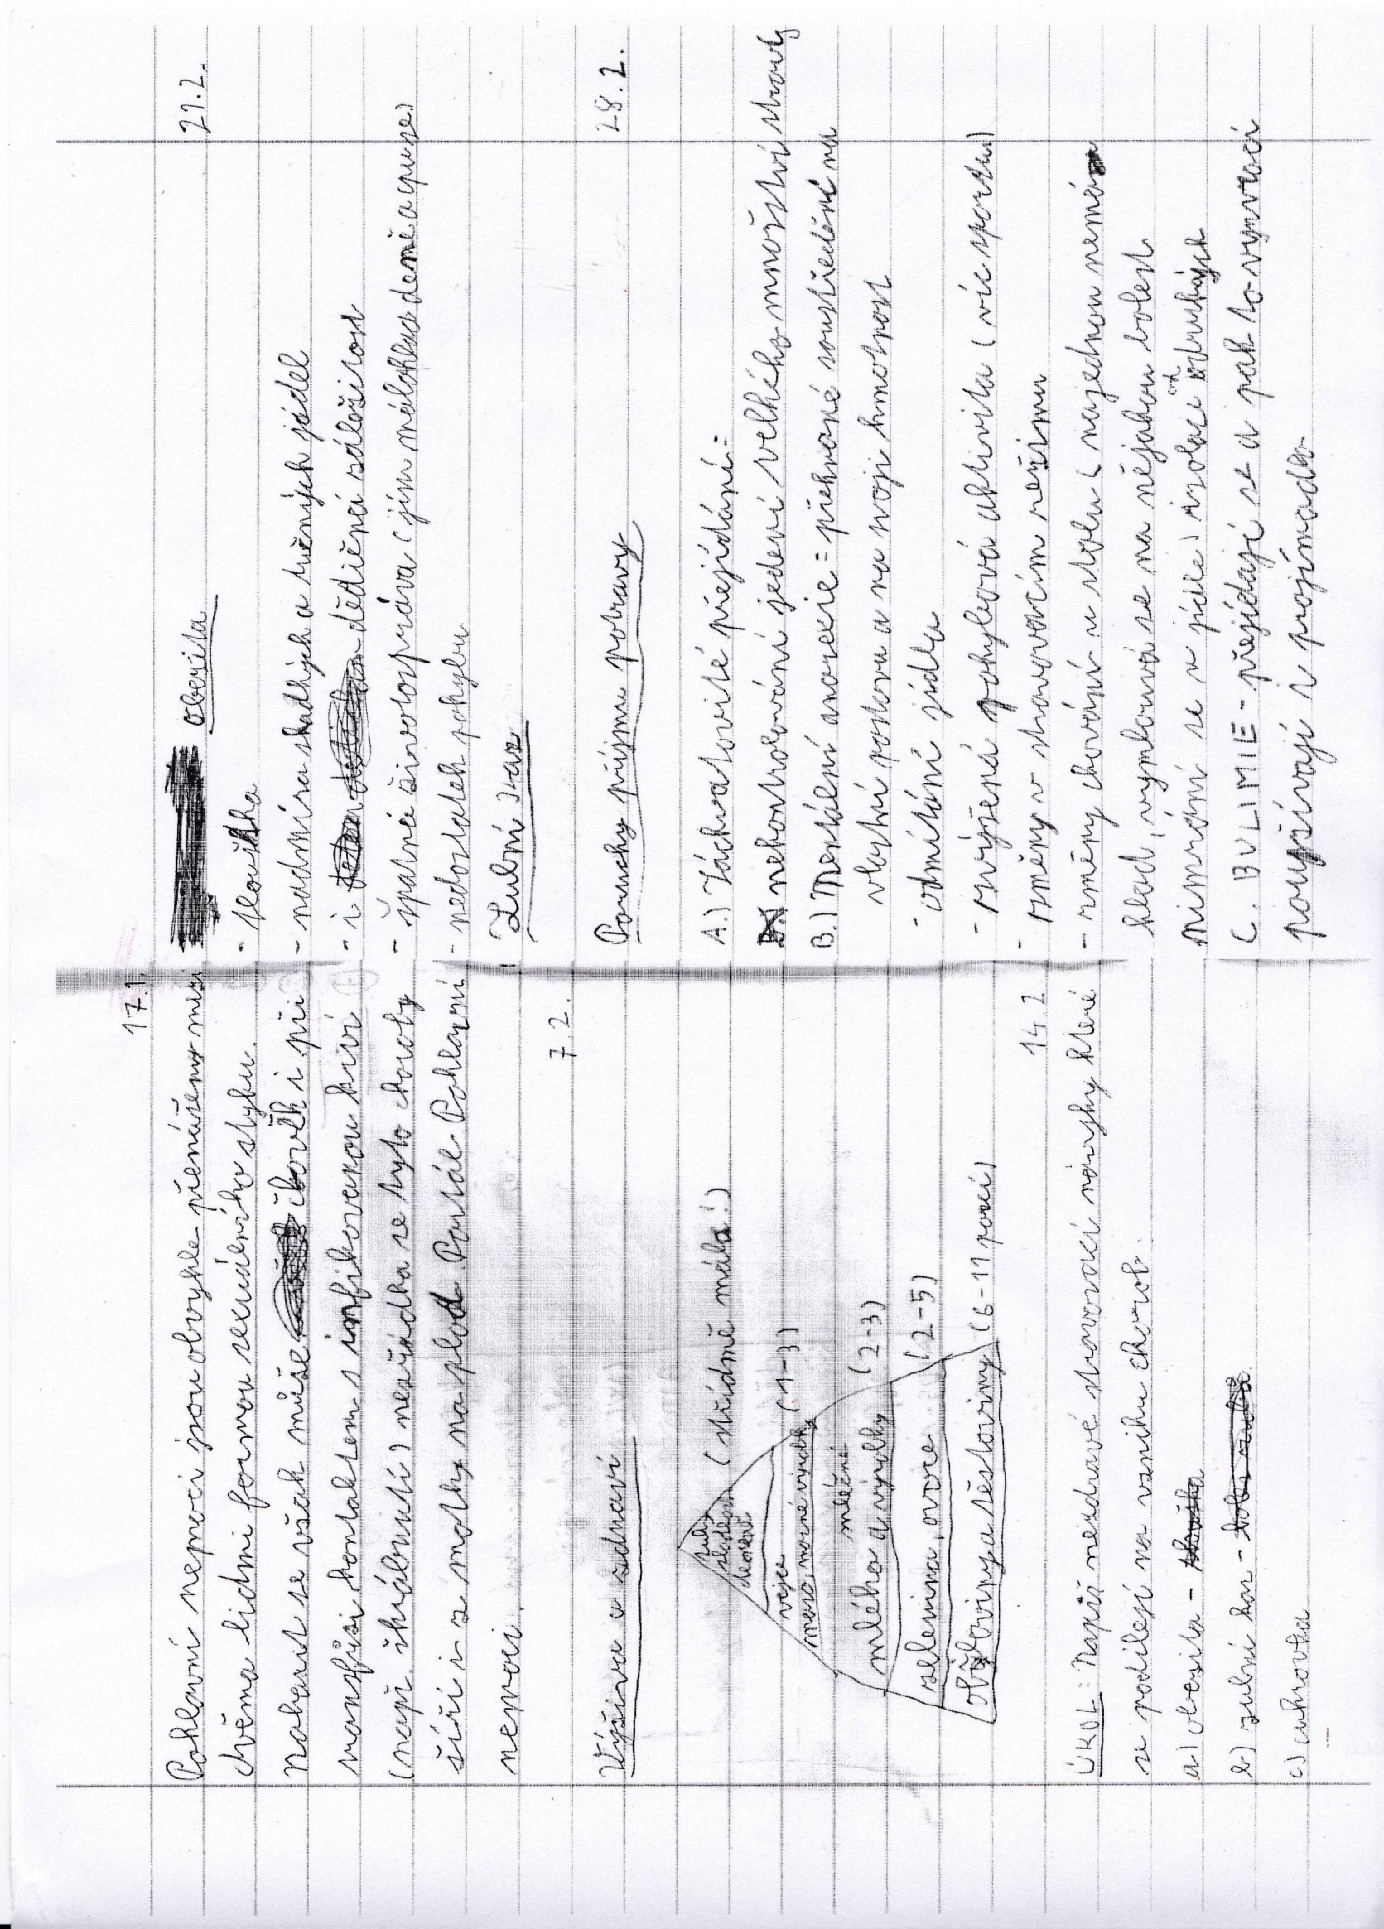 17.1.
Pohlavní nemoci jsou obvykle přenášeny mezi
dvěma lidmi formou sexuálního styku.
Nakazit se však může člověk i při
transfúzi, kontaktem s infikovanou krví
(např. škrábnutí) nezřídka se tyto choroby
šíří i z matky na plod. Portál Pohlavní
nemoci.
7.2.
Výživa a zdraví
(střídmě málo!)
vejce
maso, mořné výrobky (1-3)
mléčné
mléko a výrobky (2-3)
zelenina, ovoce (2-5)
obiloviny a těstoviny (6-11 porcí)
14.2
ÚKOL: Napiš nezdravé stravovací návyky které
se podílejí na vzniku chorob:
a) obezita -
b) zubní kaz -
c) cukrovka
21.2.
obezita
- tloušťka
- nadmíra sladkých a tučných jídel
- i dědičná záležitost
- špatná životospráva (jím málokrát denně a hodně)
- nedostatek pohybu
Zubní kaz
28.2.
Poruchy příjmu potravy
A.) Záchvatovité přejídání -
nekontrolování jedení velkého množství stravy
B.) Mentální anorexie = přehnané soustředění na
vlastní postavu a na svoji hmotnost
- odmítání jídla
- zvýšená pohybová aktivita (víc sportu)
- změny v stravovacím režimu
- změny chování u stolu (najednou nemá
hlad, vymlouvá se na nějakou bolest
nimrání se v jídle) izolace od druhých
C. BULIMIE - přejídají se a pak to vyzvrací
používají i projímadlo